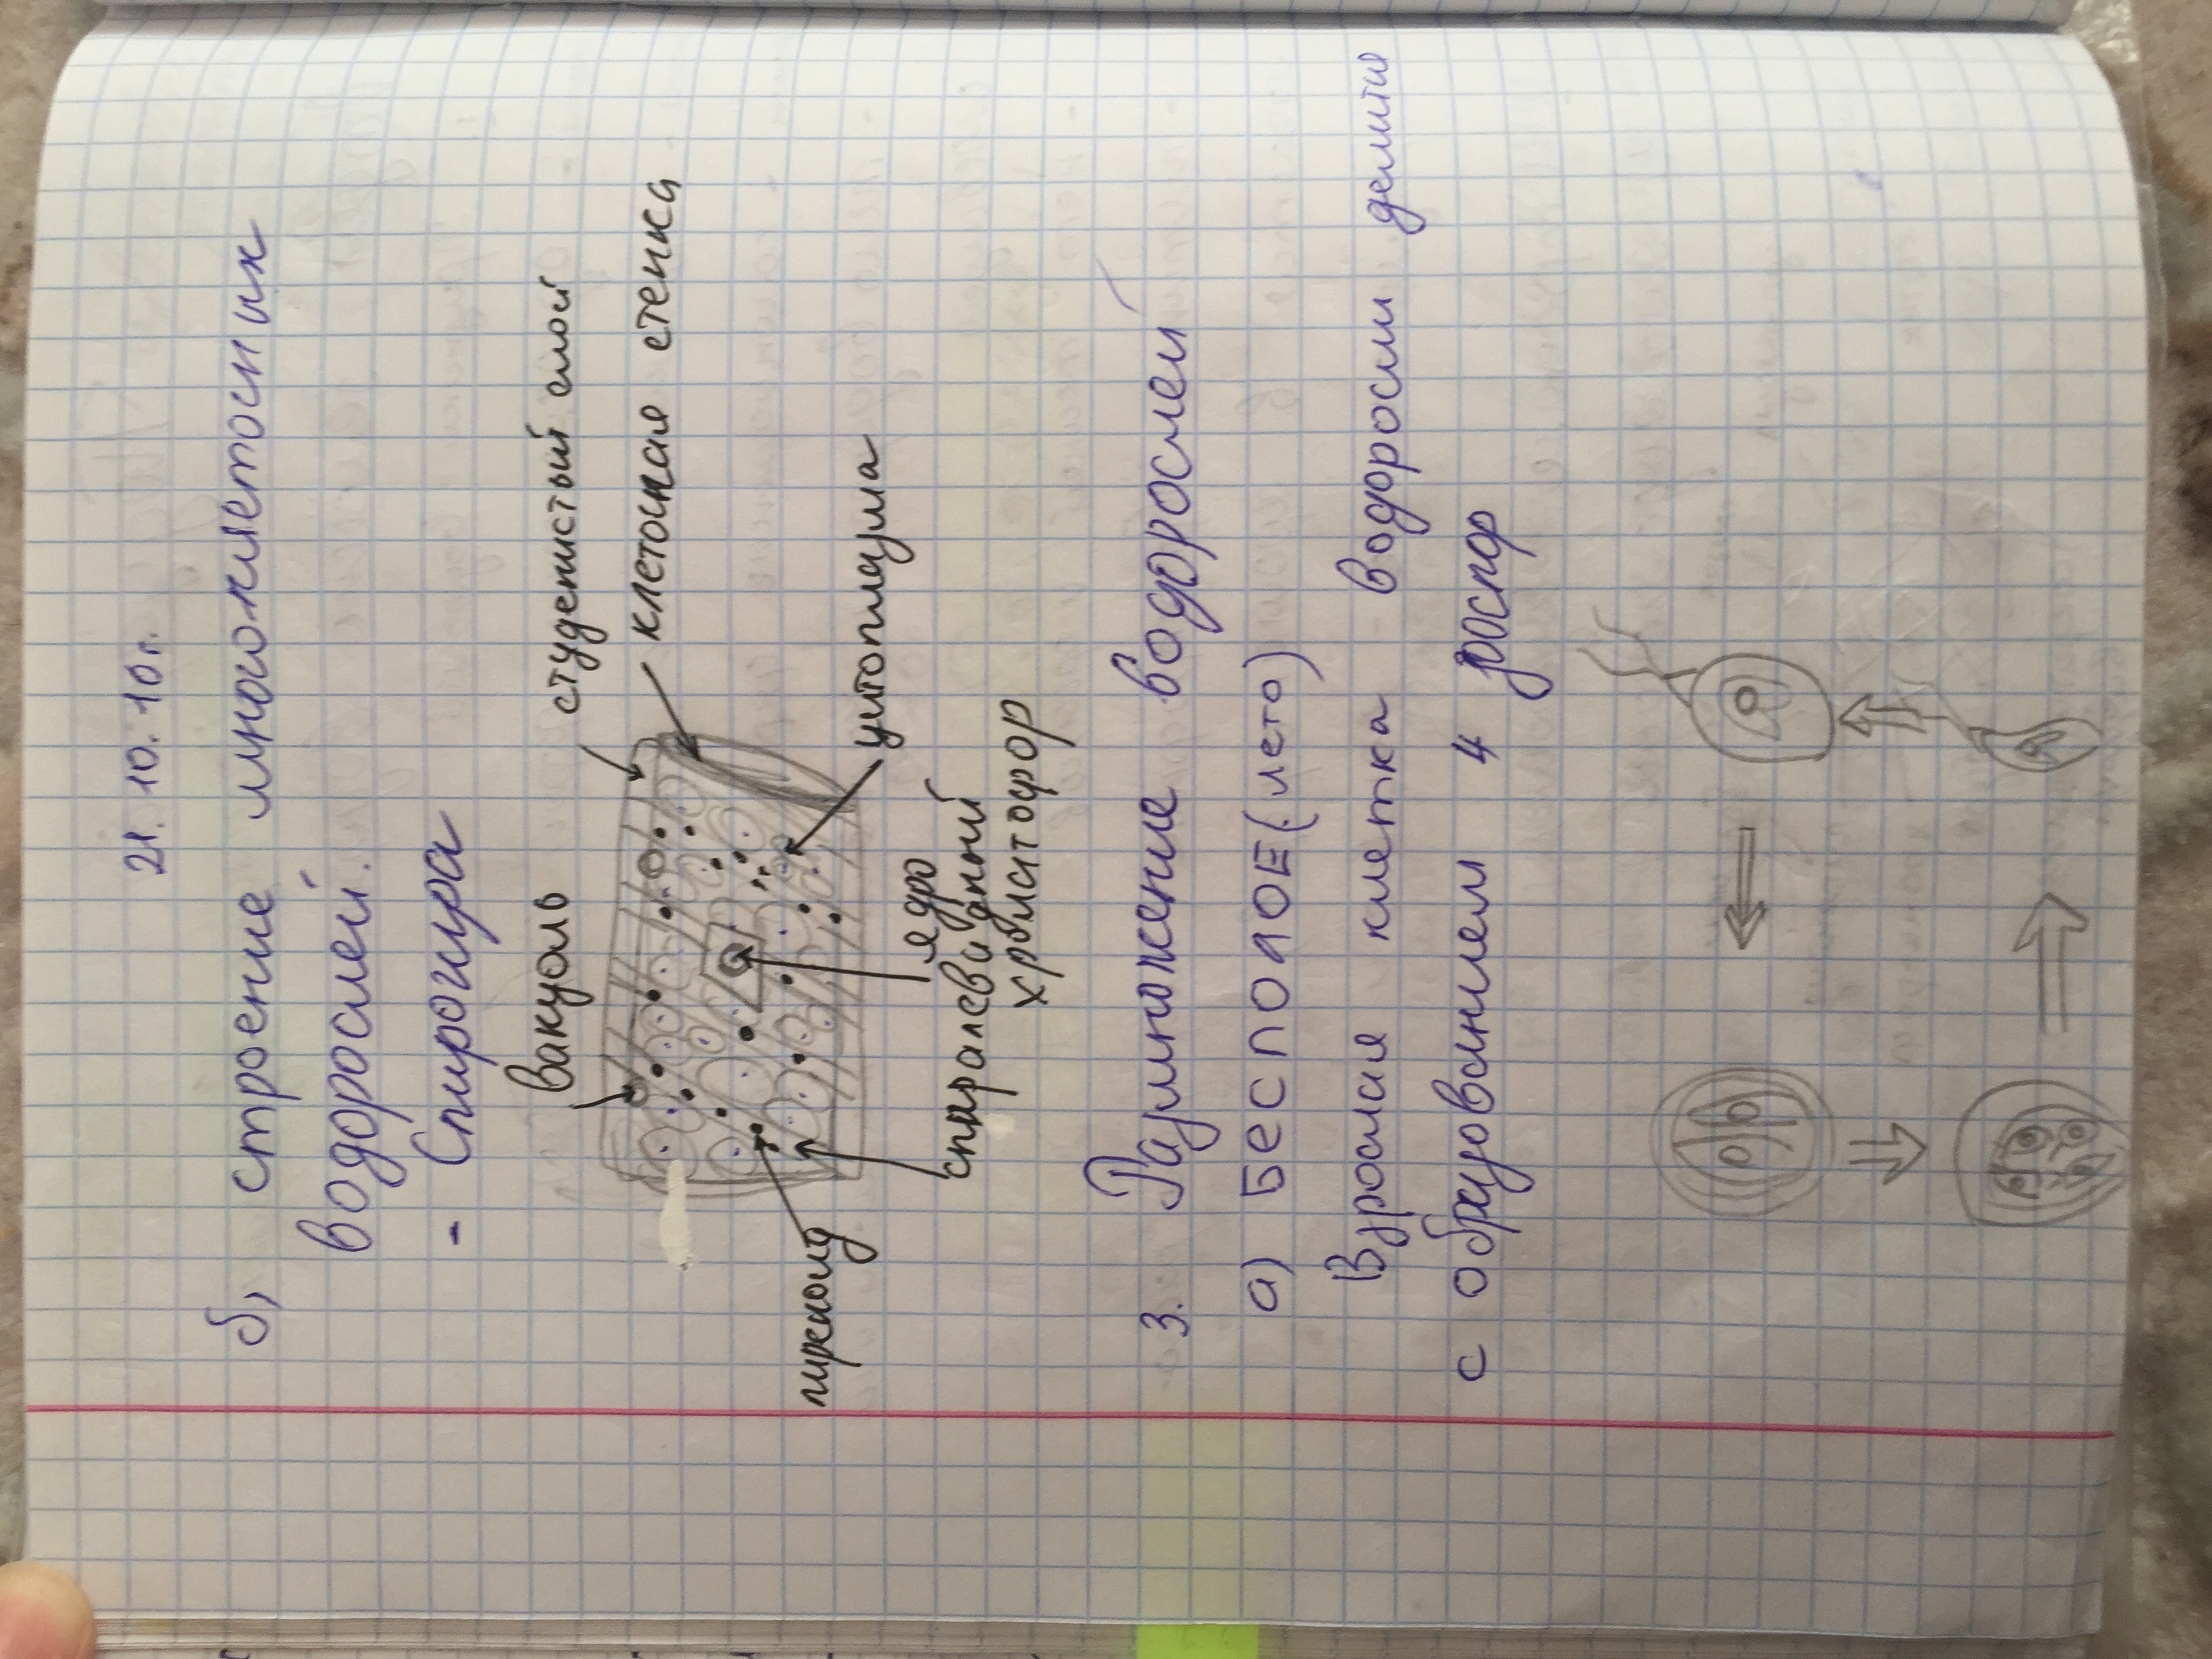 21. 10. 10г.
б, строение многоклеточных
водорослей.
- Спирогира
вакуоль
студенистый слой
клеточная стенка
цитоплазма
ядро
спиралевидный
хроматофор
пиреноид
3. Размножение водорослей
а) БЕСПОЛОЕ (лето)
Взрослая клетка водоросли делится
с образованием 4 зооспор